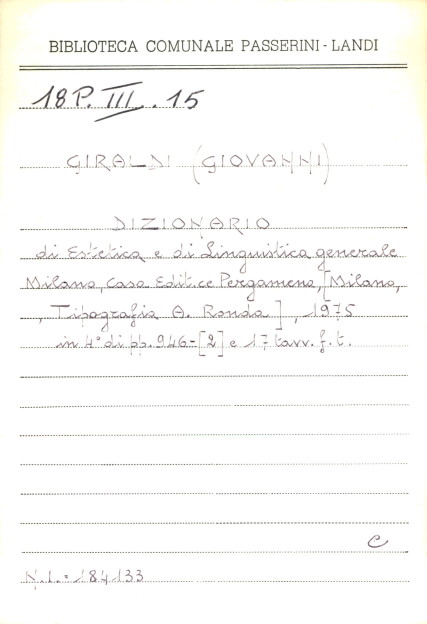 BIBLIOTECA COMUNALE PASSERINI - LANDI
18 P. III. 15
GIRALDI (GIOVANNI)
DIZIONARIO
di Estetica e di Linguistica generale
Milano, Casa Edit.ce Pergamena, [Milano,
, Tipografia A. Ronda], 1975
in 4° di pp. 946-[2] e 17 tavv. f. t.
C
N.I.: 184133